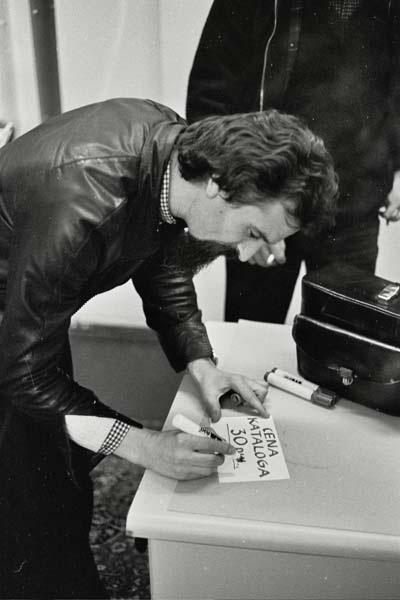 CENA
KATALOGA
30 DIN